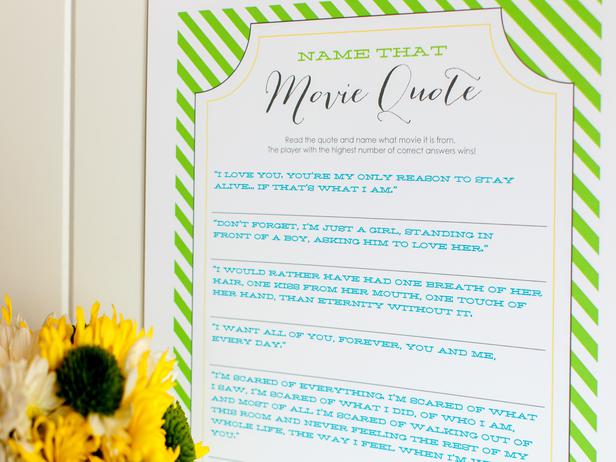 NAME THAT
Movie Quote
Read the quote and name what movie it is from.
The player with the highest number of correct answers wins!
"I LOVE YOU. YOU'RE MY ONLY REASON TO STAY
ALIVE... IF THAT'S WHAT I AM."
"DON'T FORGET, I'M JUST A GIRL, STANDING IN
FRONT OF A BOY, ASKING HIM TO LOVE HER."
"I WOULD RATHER HAVE HAD ONE BREATH OF HER
HAIR, ONE KISS FROM HER MOUTH, ONE TOUCH OF
HER HAND, THAN ETERNITY WITHOUT IT.
"I WANT ALL OF YOU, FOREVER, YOU AND ME,
EVERY DAY."
"I'M SCARED OF EVERYTHING, I'M SCARED OF WHAT
I SAW, I'M SCARED OF WHAT I DID, OF WHO I AM,
AND MOST OF ALL I'M SCARED OF WALKING OUT OF
THIS ROOM AND NEVER FEELING THE REST OF MY
WHOLE LIFE, THE WAY I FEEL WHEN I'M
YOU."